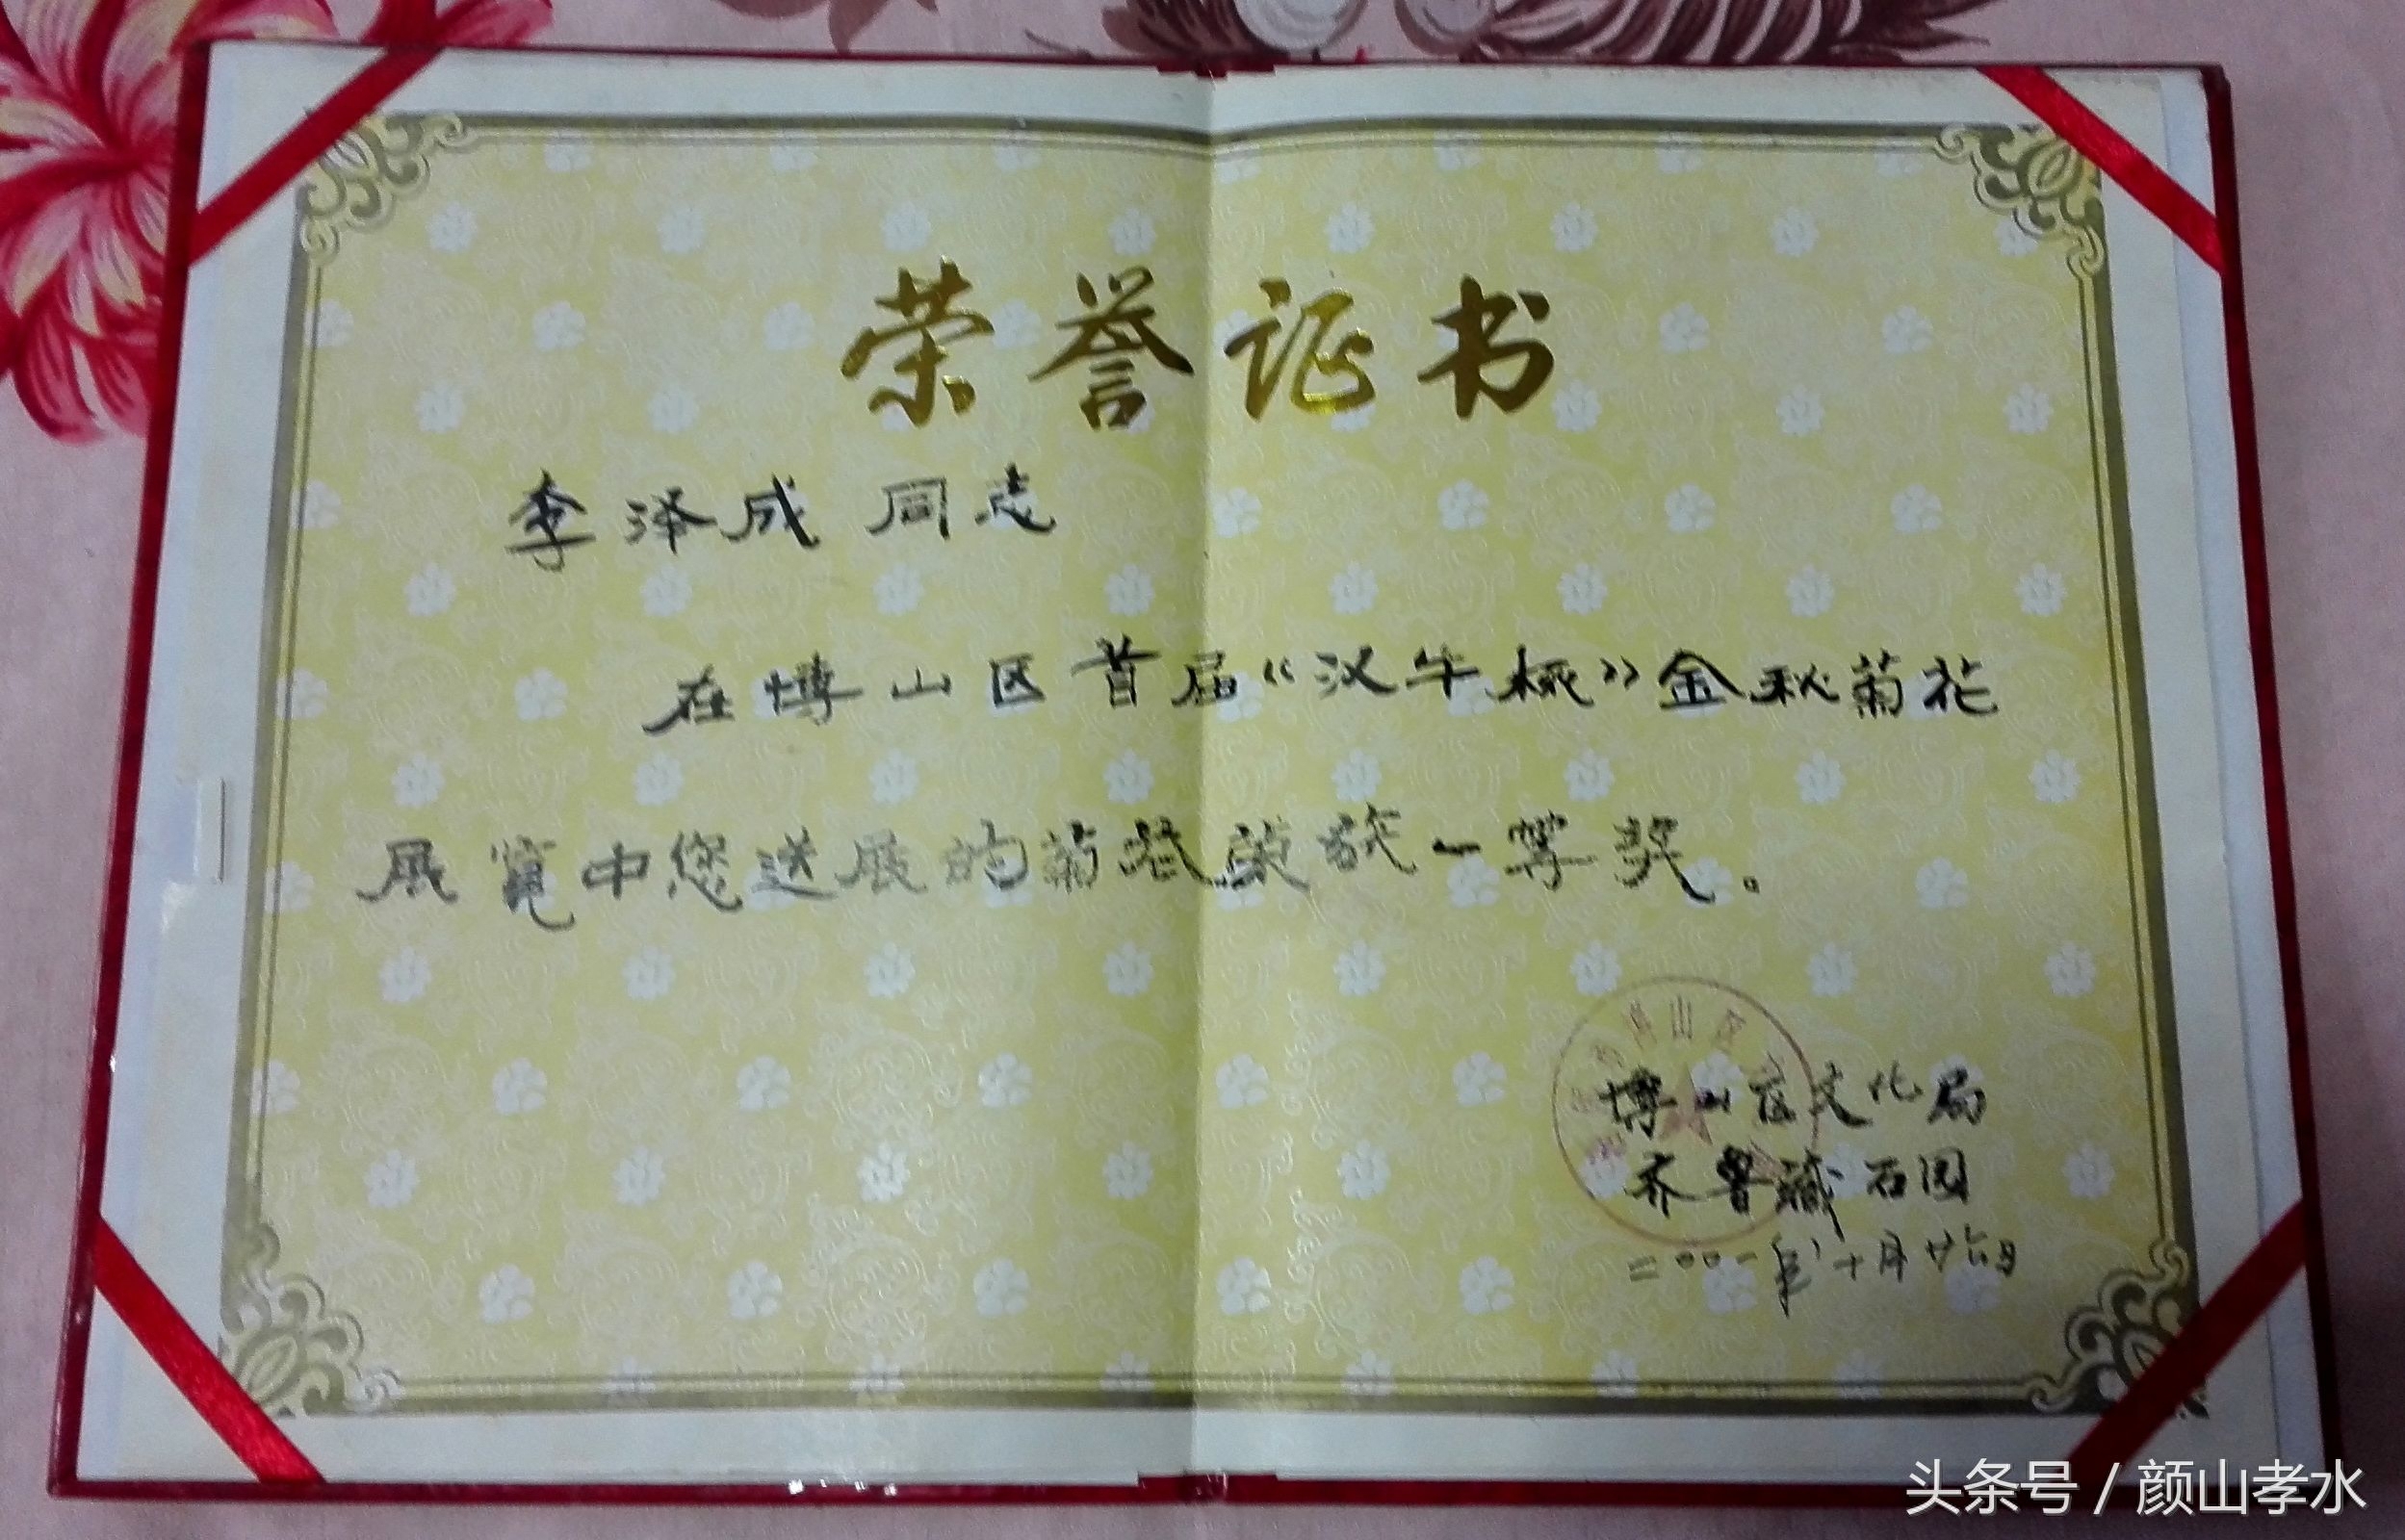 荣誉证书
李泽成 同志
在博山区首届《汉牛杯》金秋菊花
展览中您送展的菊花荣获一等奖。
山
博山区文化局
齐鲁藏石园
二〇〇一年十月廿六日
头条号 / 颜山孝水